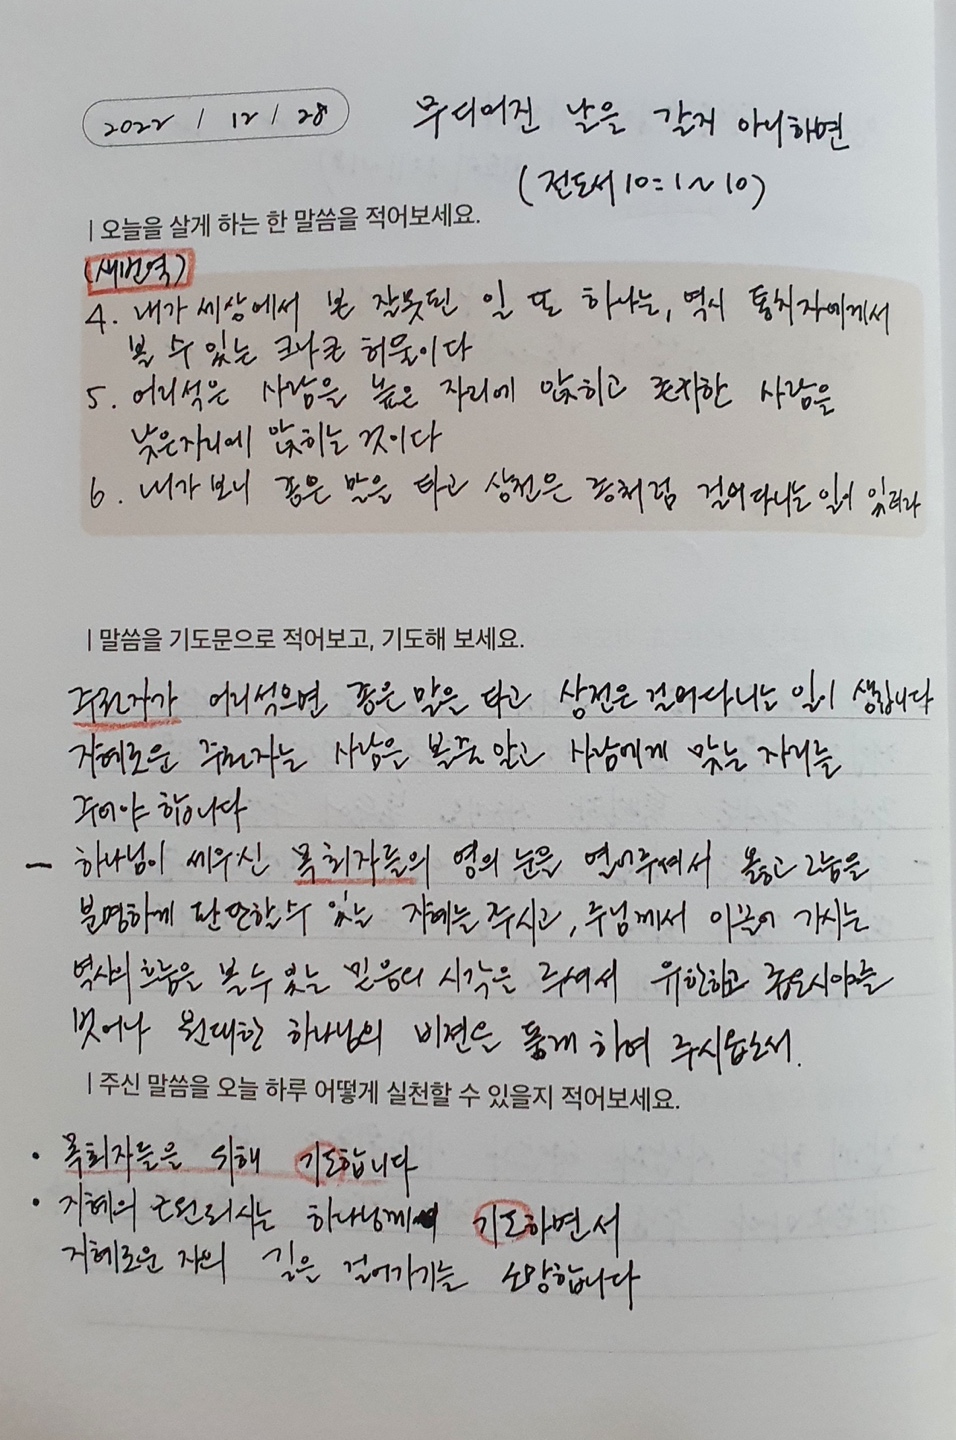 2022 / 12 / 28
무디어진 날을 갈지 아니하면
(전도서 10:1~10)
| 오늘을 살게 하는 한 말씀을 적어보세요.
(새번역)
4. 내가 세상에서 본 잘못된 일 또 하나는, 역시 통치자에게서
볼 수 있는 크나큰 허물이다
5. 어리석은 사람을 높은 자리에 앉히고 존귀한 사람을
낮은자리에 앉히는 것이다
6. 내가 보니 종은 말을 타고 상전은 종처럼 걸어다니는 일이 있더라
| 말씀을 기도문으로 적어보고, 기도해 보세요.
주권자가 어리석으면 종은 말을 타고 상전은 걸어다니는 일이 생깁니다
지혜로운 주권자는 사람을 볼줄 알고 사람에게 맞는 자리를
주어야 합니다
- 하나님이 세우신 목회자들의 영의 눈을 열어주셔서 옳고 그름을
분명하게 판단할수 있는 지혜를 주시고, 주님께서 이끌어 가시는
역사의 흐름을 볼 수 있는 믿음의 시각을 주셔서 유한하고 좁은시야를
벗어나 원대한 하나님의 비젼을 품게 하여 주시옵소서.
| 주신 말씀을 오늘 하루 어떻게 실천할 수 있을지 적어보세요.
• 목회자들을 위해 기도합니다
• 지혜의 근원되시는 하나님께 기도하면서
지혜로운 자의 길을 걸어가기를 소망합니다